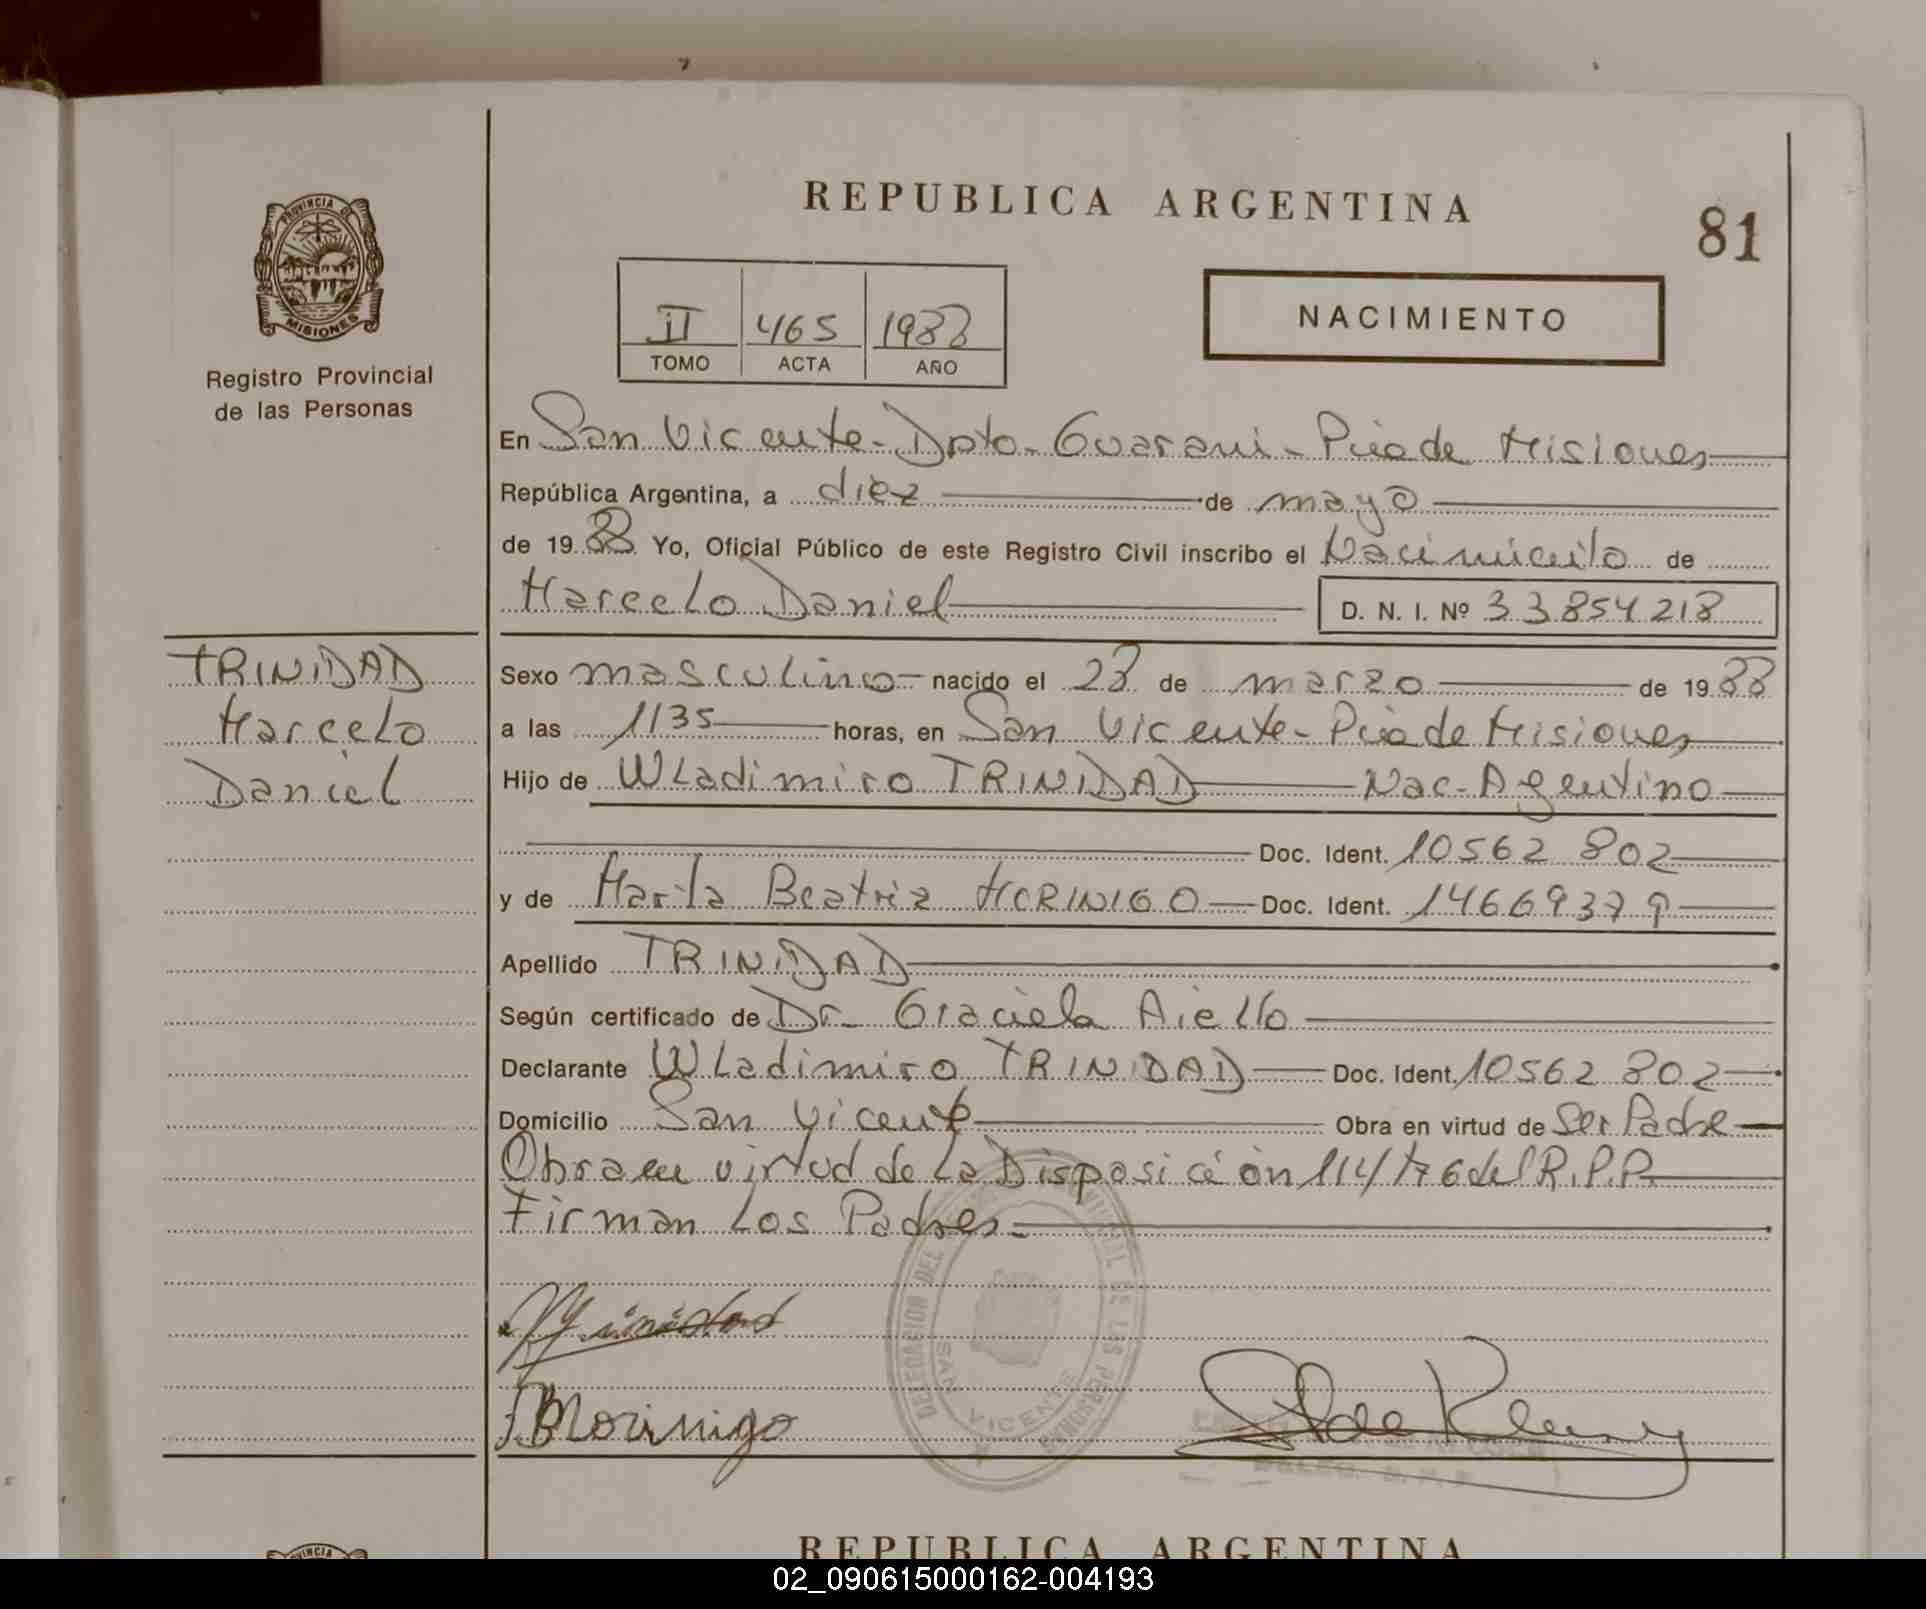 REPUBLICA ARGENTINA
81
PROVINCIA DE
MISIONES
Registro Provincial
de las Personas
II 465 1988
TOMO ACTA AÑO
NACIMIENTO
En San Vicente - Dpto - Guarani - Pcia de Misiones
República Argentina, a diez de mayo
de 1988 Yo, Oficial Público de este Registro Civil inscribo el Nacimiento de
Marcelo Daniel D. N. I. Nº 33854218
TRINIDAD
Marcelo
Daniel
Sexo masculino nacido el 28 de marzo de 1988
a las 1135 horas, en San Vicente - Pcia de Misiones
Hijo de Wladimiro TRINIDAD Nac - Agentino
Doc. Ident. 10562 802
y de María Beatriz MORINIGO Doc. Ident. 14669379
Apellido TRINIDAD
Según certificado de Dr - Graciela Aiello
Declarante Wladimiro TRINIDAD Doc. Ident. 10562 802
Domicilio San Vicente Obra en virtud de Ser Padre
Obra en virtud de la Disposición 114/76 del R.P.P.
Firman los Padres -
DELEGACION DEL DE LAS PERSONAS
SAN VICENTE
Morinigo
PROVINCIA
REPUBLICA ARGENTINA
02_090615000162-004193